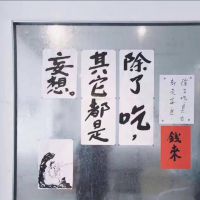 除了吃，
其它都是
妄想。
錢来